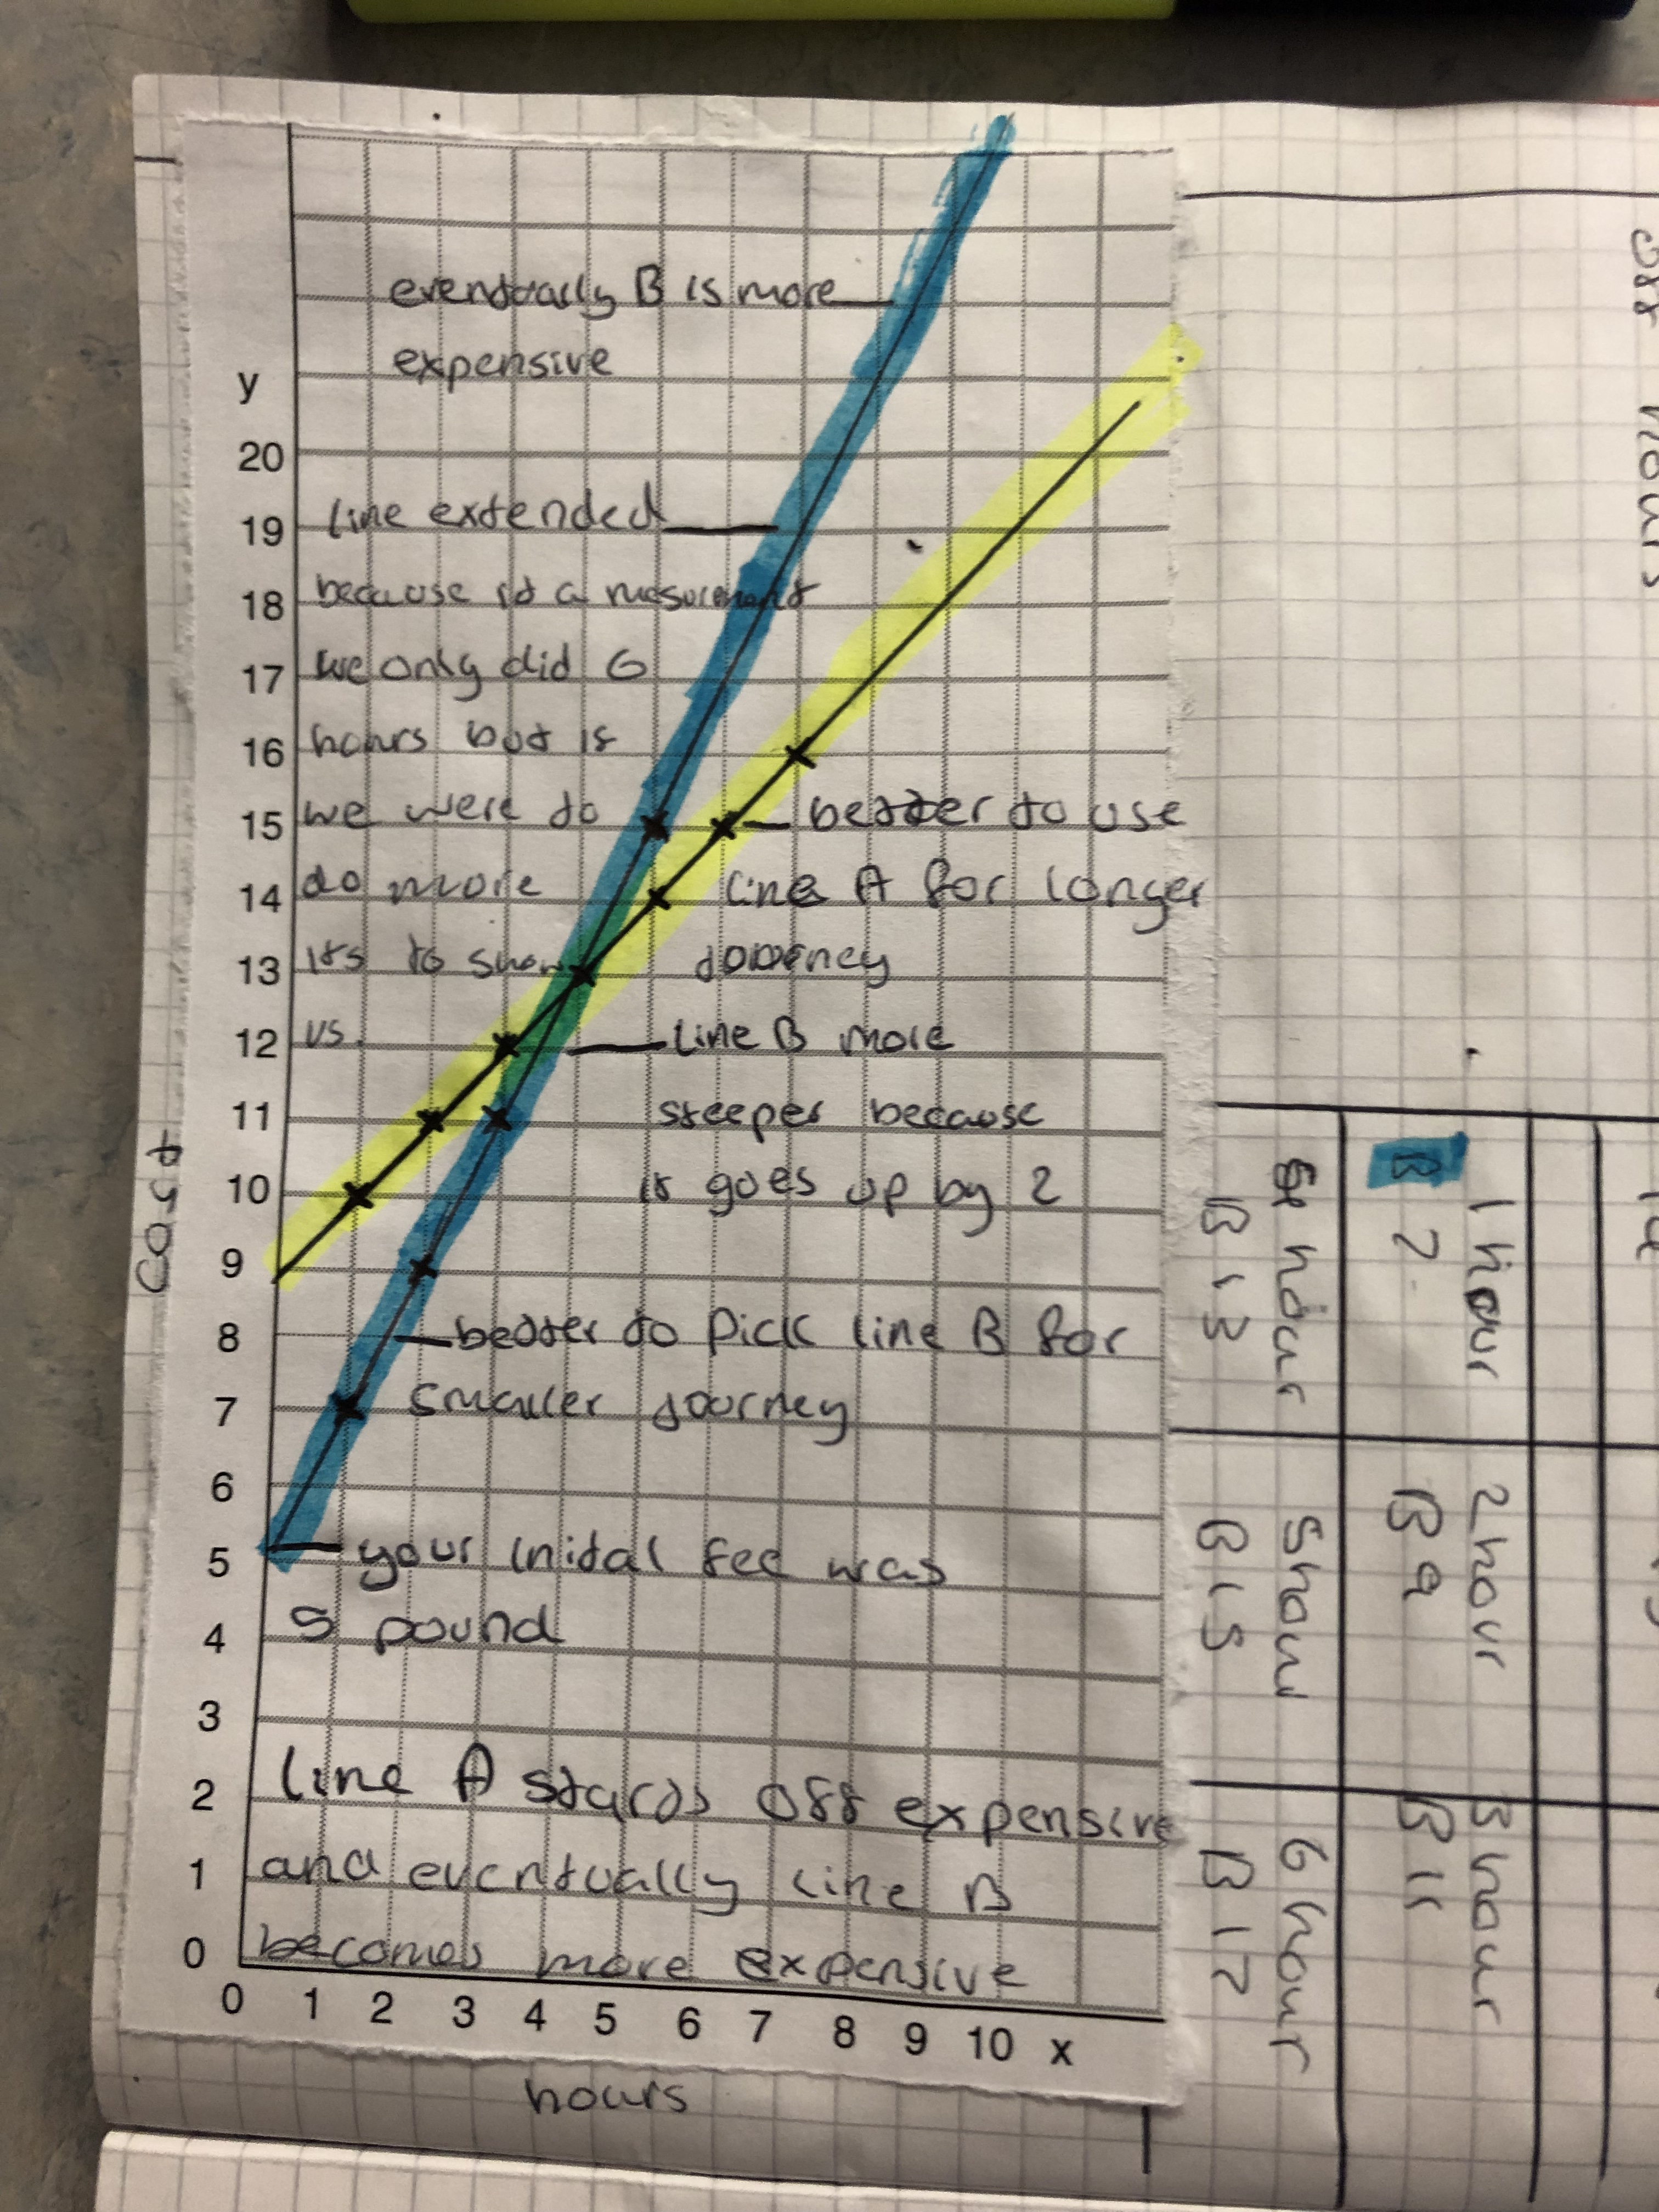 eventually B is more
expensive
y
20
19
18
17
16
15
14
13
12
11
10
9
8
7
6
5
4
3
2
1
0
line extended
because it a mesurement
we only did 6
hours but if
we were to
do more
its to show
us.
better to use
line A for longer
journey
line B more
steeper because
it goes up by 2
better to pick line B for
smaller journey
your inital fee was
5 pound
line A starts off expensive
and eventually line B
becomes more expensive
0 1 2 3 4 5 6 7 8 9 10 x
hours
cost
off hours
1 hour
B 7
2 hour
B 9
3 hour
B 11
hour
B 13
5 hour
B 15
6 hour
B 17